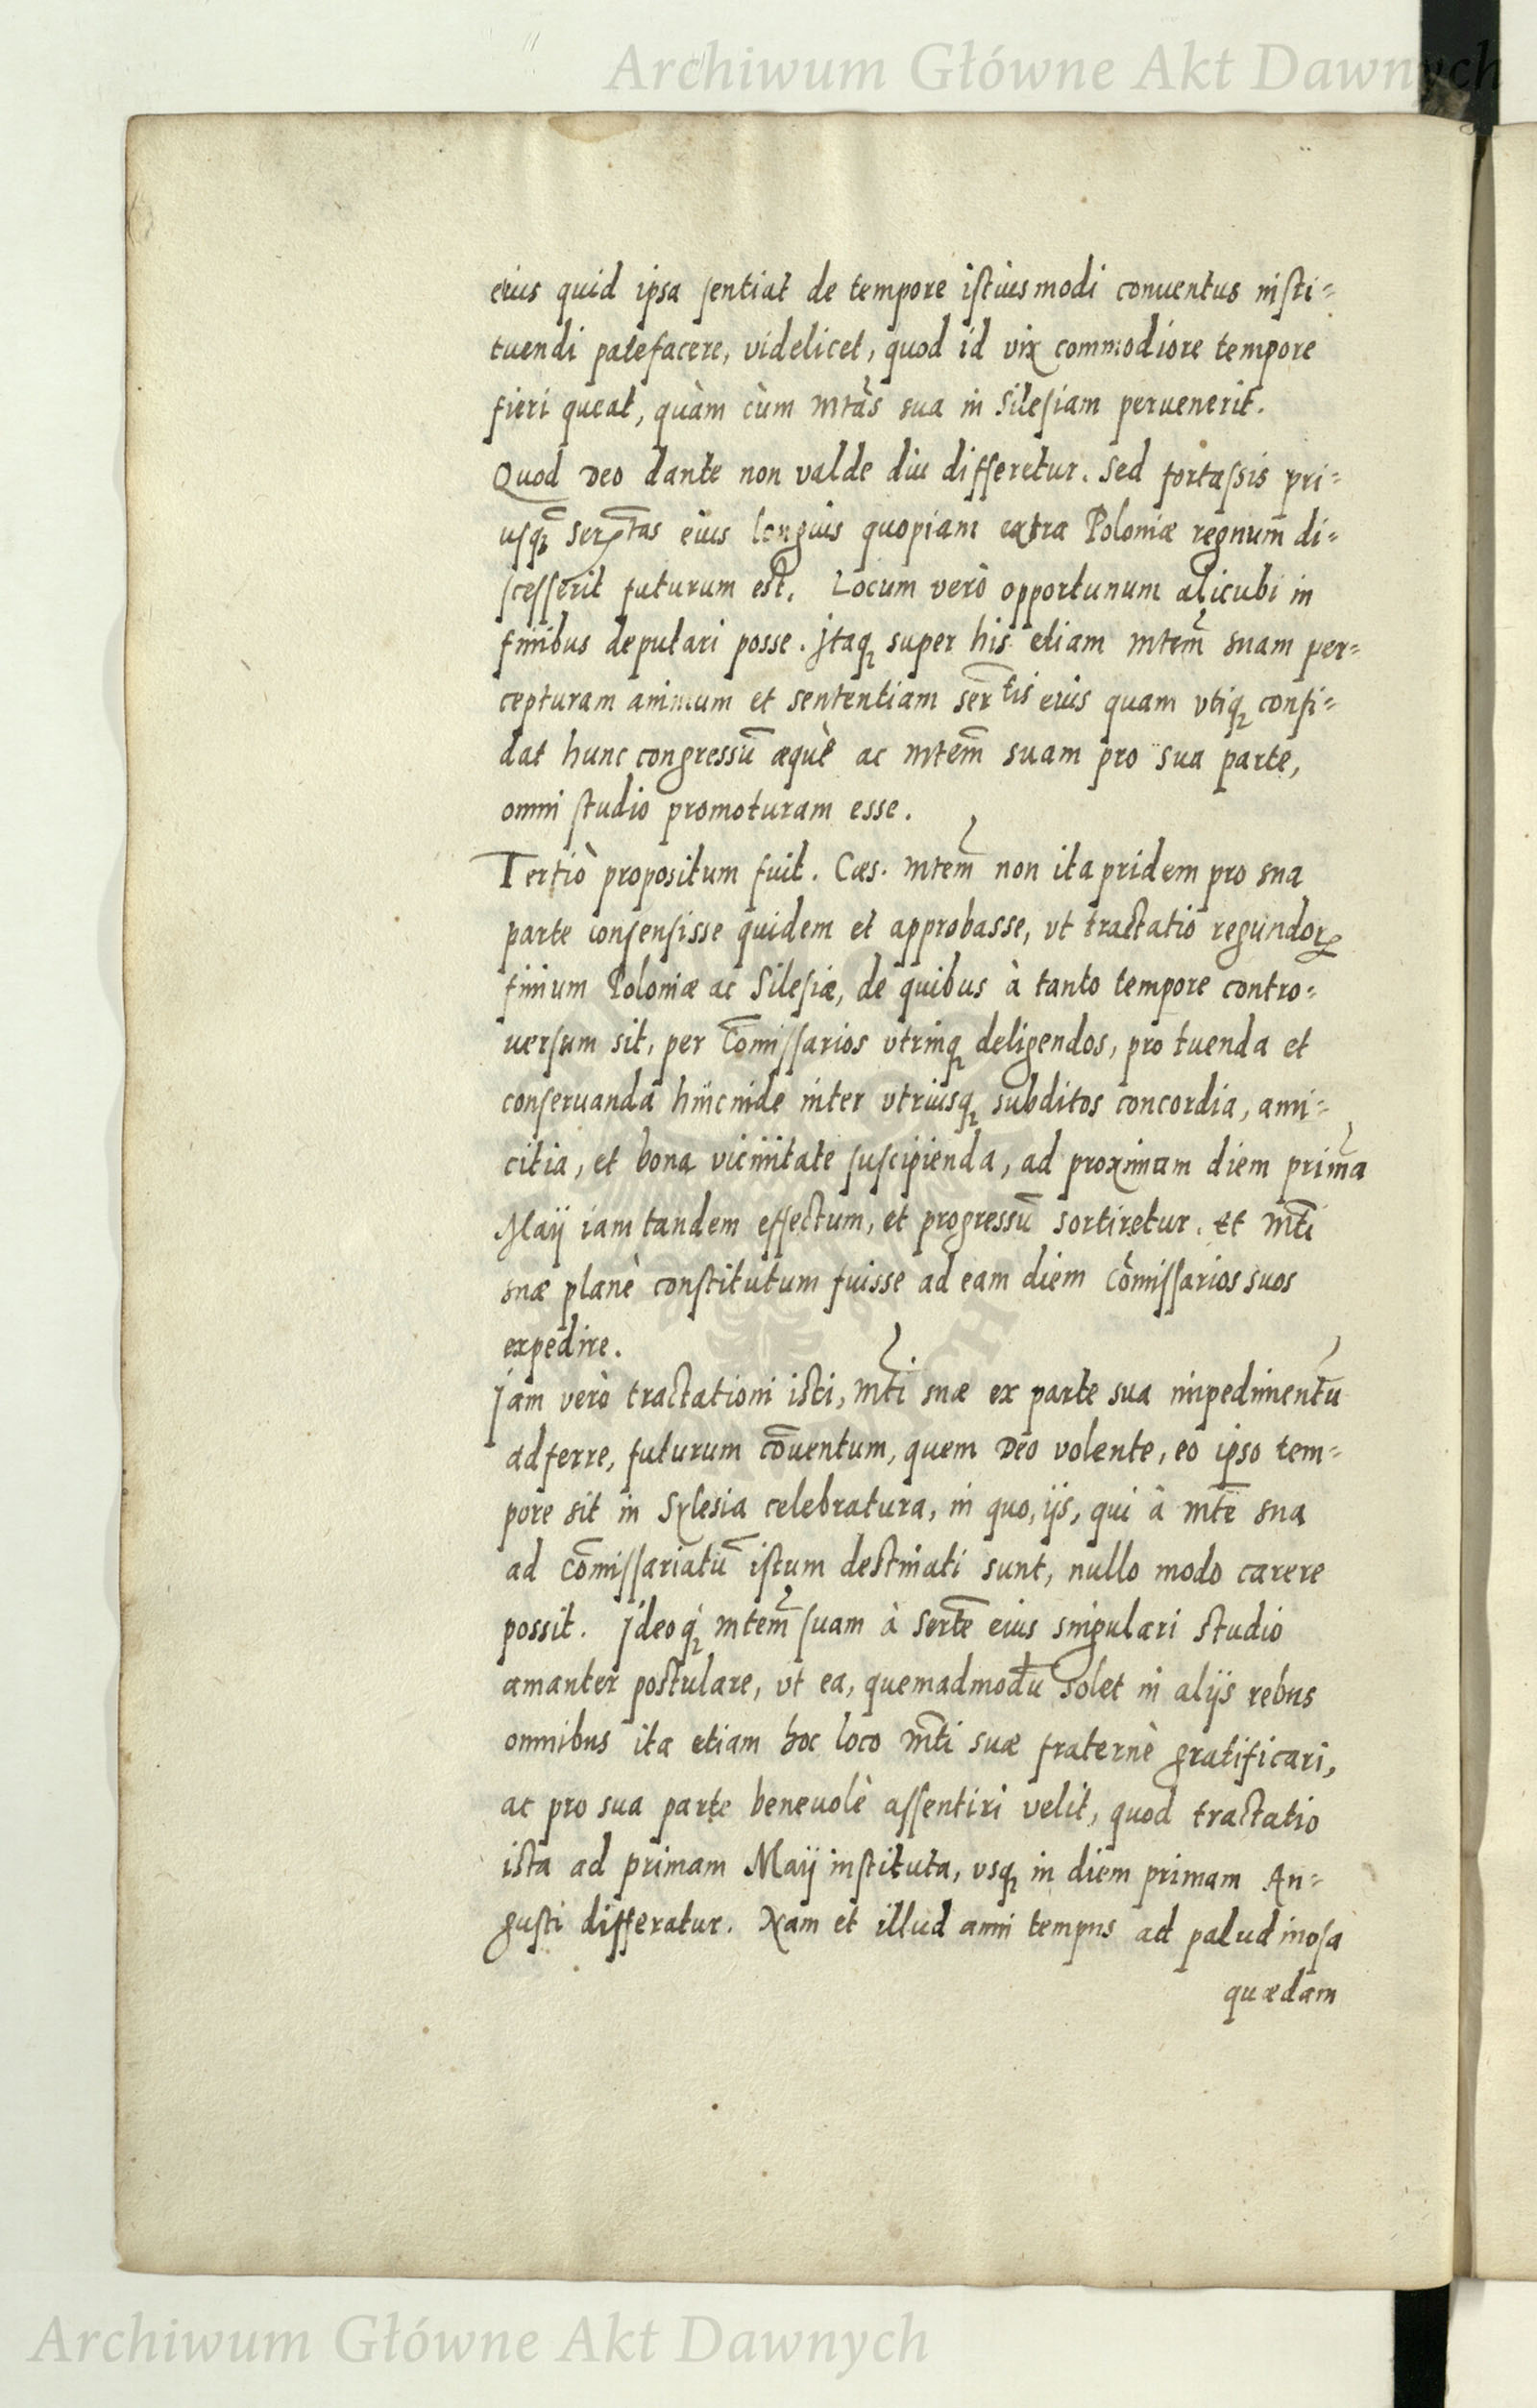 Archiwum Główne Akt Dawnych
eius quid ipsa sentiat de tempore istiusmodi conuentus insti=
tuendi patefacere, videlicet, quod id vix commodiore tempore
fieri queat, quàm cùm Mtas sua in Silesiam peruenerit.
Quod Deo dante non valde diu differetur. Sed fortassis pri=
usq̃ Sertas eius longius quopiam extra Poloniæ regnum di=
scesserit futurum est. Locum verò opportunum alicubi in
finibus deputari posse. Itaq super his etiam Mtem suam per=
cepturam animum et sententiam Sertis eius quam vtiq confi=
dat hunc congressũ æquè ac Mtem suam pro sua parte,
omni studio promoturam esse.
Tertiò propositum fuit. Cæs. Mtem non ita pridem pro sua
parte consensisse quidem et approbasse, vt tractatio regundoꝝ
finium Poloniæ ac Silesiæ, de quibus à tanto tempore contro=
uersum sit, per Com̃issarios vtrinq deligendos, pro tuenda et
conseruanda hincinde inter vtriusq subditos concordia, ami=
citia, et bona vicinitate suscipienda, ad proximam diem prim̃a
Maij iam tandem effectum, et progressũ sortiretur. Et Mti
suæ planè constitutum fuisse ad eam diem Com̃issarios suos
expedire.
Iam verò tractationi isti, Mti suæ ex parte sua impedimentũ
adferre, futurum cõuentum, quem Deo volente, eo ipso tem=
pore sit in Sylesia celebratura, in quo, ijs, qui à Mte sua
ad Com̃issariatũ istum destinati sunt, nullo modo carere
possit. Ideoq Mtem suam à Serte eius singulari studio
amanter postulare, vt ea, quemadmodũ solet in alijs rebus
omnibus ita etiam hoc loco Mti suæ fraternè gratificari,
ac pro sua parte beneuolè assentiri velit, quod tractatio
ista ad primam Maij instituta, vsq in diem primam Au=
gusti differatur. Nam et illud anni tempus ad paludinosa
quædam
Archiwum Główne Akt Dawnych